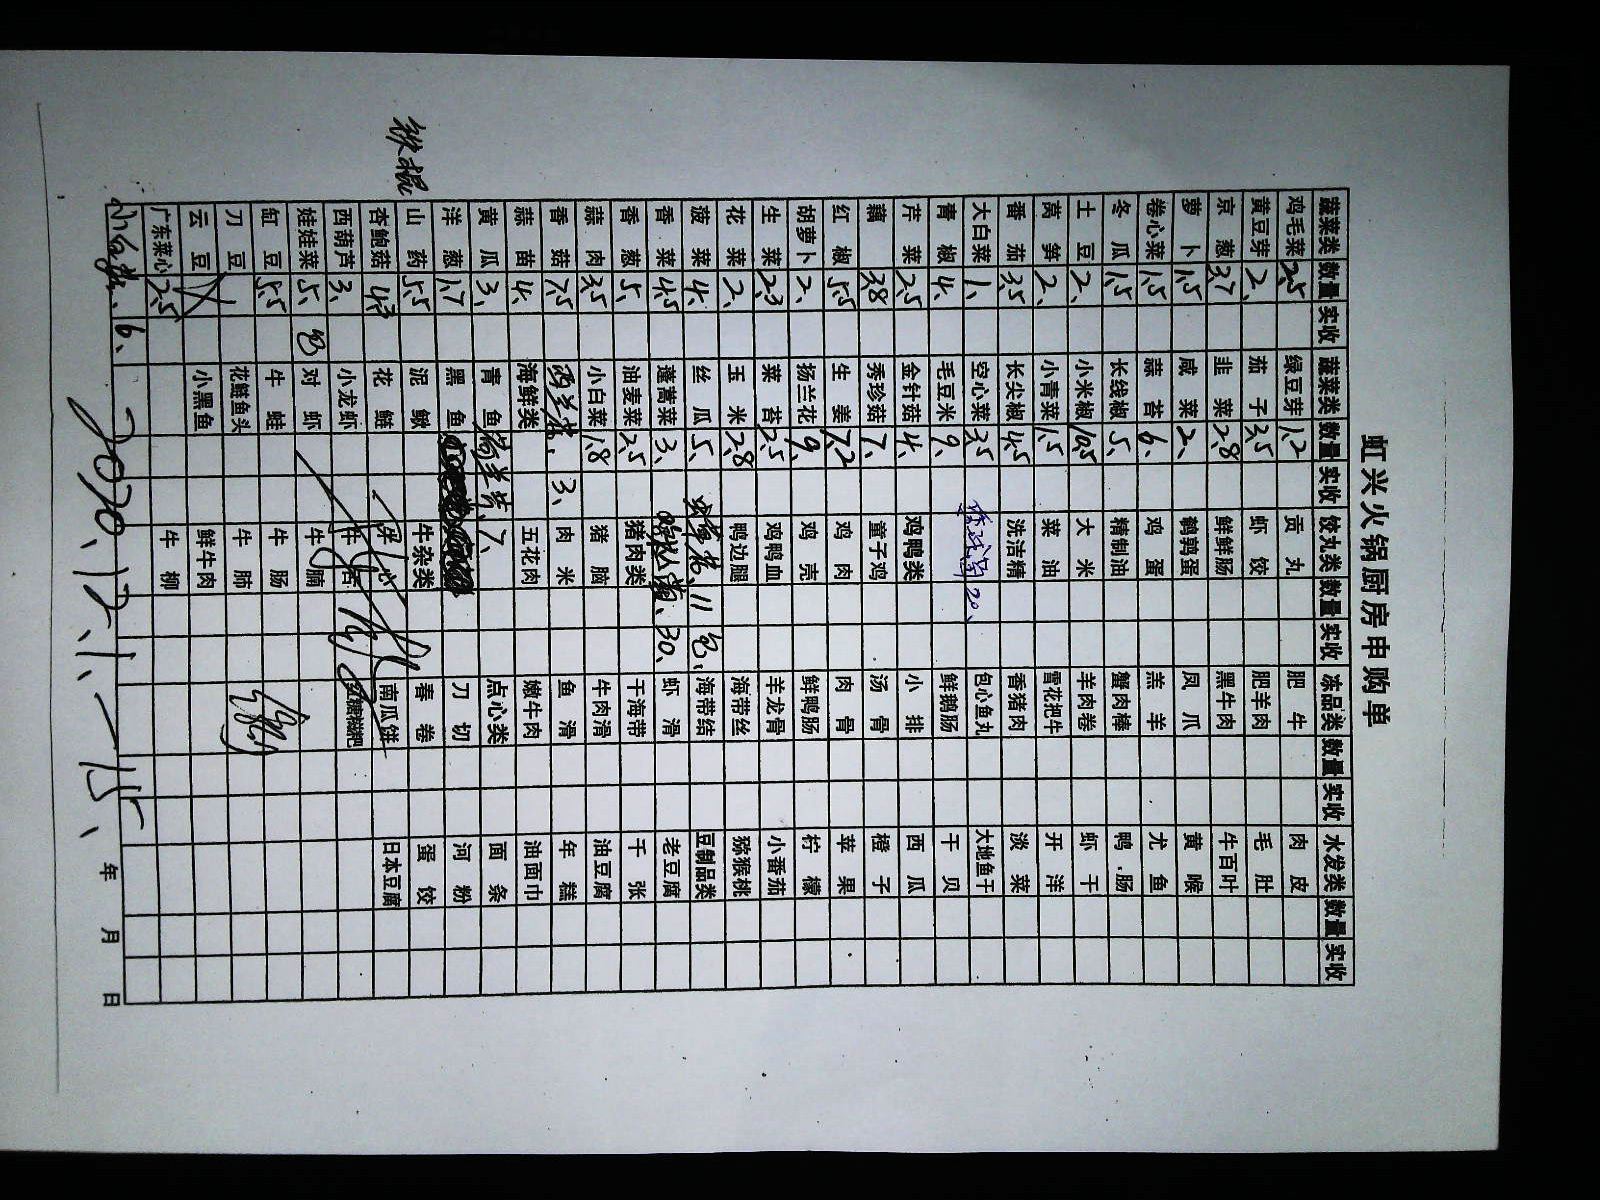 虹兴火锅厨房申购单
蔬菜类 数量 实收 蔬菜类 数量 实收 饺丸类 数量 实收 冻品类 数量 实收 水发类 数量 实收
鸡毛菜 2.5 绿豆芽 1.2 贡丸 肥牛 肉皮
黄豆芽 2、 茄子 3.5 虾饺 肥羊肉 毛肚
京葱 3.7 韭菜 2.8 鲜鲜肠 黑牛肉 牛百叶
萝卜 1.5 咸菜 2、 鹌鹑蛋 凤爪 黄喉
卷心菜 1.5 蒜苔 6、 鸡蛋 羔羊 尤鱼
冬瓜 1.5 长线椒 5、 精制油 蟹肉棒 鸭肠
土豆 2、 小米椒 10.5 大米 羊肉卷 虾干
莴笋 2、 小青菜 1.5 菜油 雪花把牛 开洋
番茄 3.5 长尖椒 4.5 洗洁精 香猪肉 淡菜
大白菜 1、 空心菜 3.5 20、 包心鱼丸 大地鱼干
青椒 4、 毛豆米 9、 鲜鹅肠 干贝
芹菜 2.5 金针菇 4、 鸡鸭类 小排 西瓜
藕 3.8 秀珍菇 7、 童子鸡 汤骨 橙子
红椒 5.5 生姜 7.2 鸡肉 肉骨 苹果
胡萝卜 2、 扬兰花 9、 鸡壳 鲜鸭肠 柠檬
生菜 2.3 菜苔 2.5 鸡鸭血 羊龙骨 小番茄
花菜 2、 玉米 2.8 鸭边腿 海带丝 猕猴桃
菠菜 4、 丝瓜 5、 11包、 海带结 豆制品类
香菜 4.5 蓬蒿菜 3、 30、 虾滑 老豆腐
香葱 5、 油麦菜 2.5 猪肉类 干海带 千张
蒜肉 3.5 小白菜 1.8 猪脑 牛肉滑 油豆腐
香菇 7.5 西兰苔、 3、 肉米 鱼滑 年糕
蒜苗 4、 海鲜类 五花肉 嫩牛肉 油面巾
黄瓜 3、 青鱼 7、 点心类 面条
洋葱 1.7 黑鱼 刀切 河粉
铁棍 山药 5.5 泥鳅 牛杂类 春卷 蛋饺
杏鲍菇 4.3 花鲢 南瓜饼 日本豆腐
西葫芦 3、 小龙虾 牛舌 红糖糍粑
娃娃菜 5、 包 对虾 牛腩
缸豆 5.5 牛蛙 牛肠
刀豆 花鲢鱼头 牛肺
云豆 小黑鱼 鲜牛肉
广东菜心 2.5 牛柳
6、
2020.12.1.-15、
年 月 日